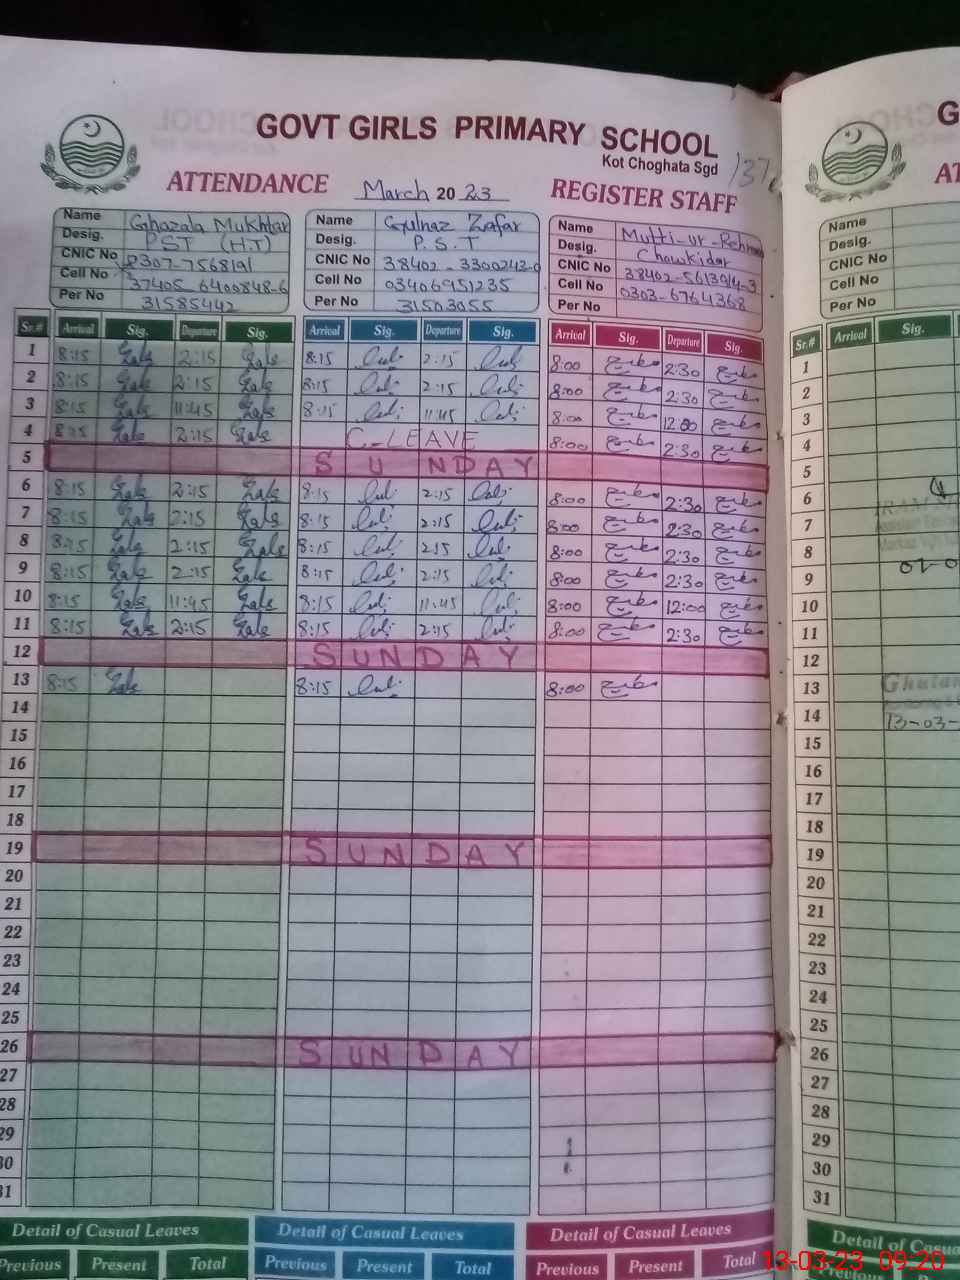 GOVT GIRLS PRIMARY SCHOOL
Kot Choghata Sgd
ATTENDANCE March 2023 REGISTER STAFF
Name Ghazala Mukhtar Name Gulnaz Zafar Name Mutti-ur-Rehman
Desig. PST (H.T) Desig. P.S.T Desig. Chowkidar
CNIC No 0307-7568191 CNIC No 38402-3300242-0 CNIC No 38402-5613914-3
Cell No 37405-6400848-6 Cell No 03406951235 Cell No 0303-6764368
Per No 31585442 Per No 31503055 Per No
Sr.# Arrival Sig. Departure Sig. Arrival Sig. Departure Sig. Arrival Sig. Departure Sig.
1 8:15 2:15 8:15 2:15 8:00 مطیع 2:30 مطیع
2 8:15 2:15 8:15 2:15 8:00 مطیع 2:30 مطیع
3 8:15 11:45 8:15 11:45 8:00 مطیع 12:00 مطیع
4 8:15 2:15 C-LEAVE 8:00 مطیع 2:30 مطیع
5 SUNDAY
6 8:15 2:15 8:15 2:15 8:00 مطیع 2:30 مطیع
7 8:15 2:15 8:15 2:15 8:00 مطیع 2:30 مطیع
8 8:15 2:15 8:15 215 8:00 مطیع 2:30 مطیع
9 8:15 2:15 8:15 2:15 8:00 مطیع 2:30 مطیع
10 8:15 11:45 8:15 11:45 8:00 مطیع 12:00 مطیع
11 8:15 2:15 8:15 2:15 8:00 مطیع 2:30 مطیع
12 SUNDAY
13 8:15 8:15 8:00 مطیع
14
15
16
17
18
19 SUNDAY
20
21
22
23
24
25
26 SUNDAY
27
28
29
30
31
Detail of Casual Leaves Detail of Casual Leaves Detail of Casual Leaves
Previous Present Total Previous Present Total Previous Present Total
G
AT
Name
Desig.
CNIC No
Cell No
Per No
Sr.# Arrival Sig.
1
2
3
4
5
6
7
8
9
10
11
12
13
14 13-03-
15
16
17
18
19
20
21
22
23
24
25
26
27
28
29
30
31
Detail of Casual
Previous
13-03-23 09:20